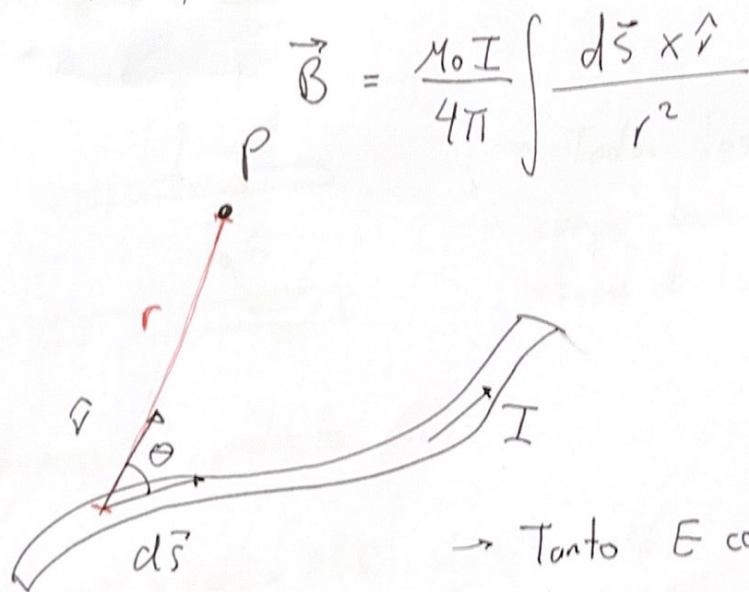 B⃗ = μ₀I/4π ∫ ds⃗ × r̂ / r²
P
r
r̂
θ
I
ds⃗
→ Tanto E co